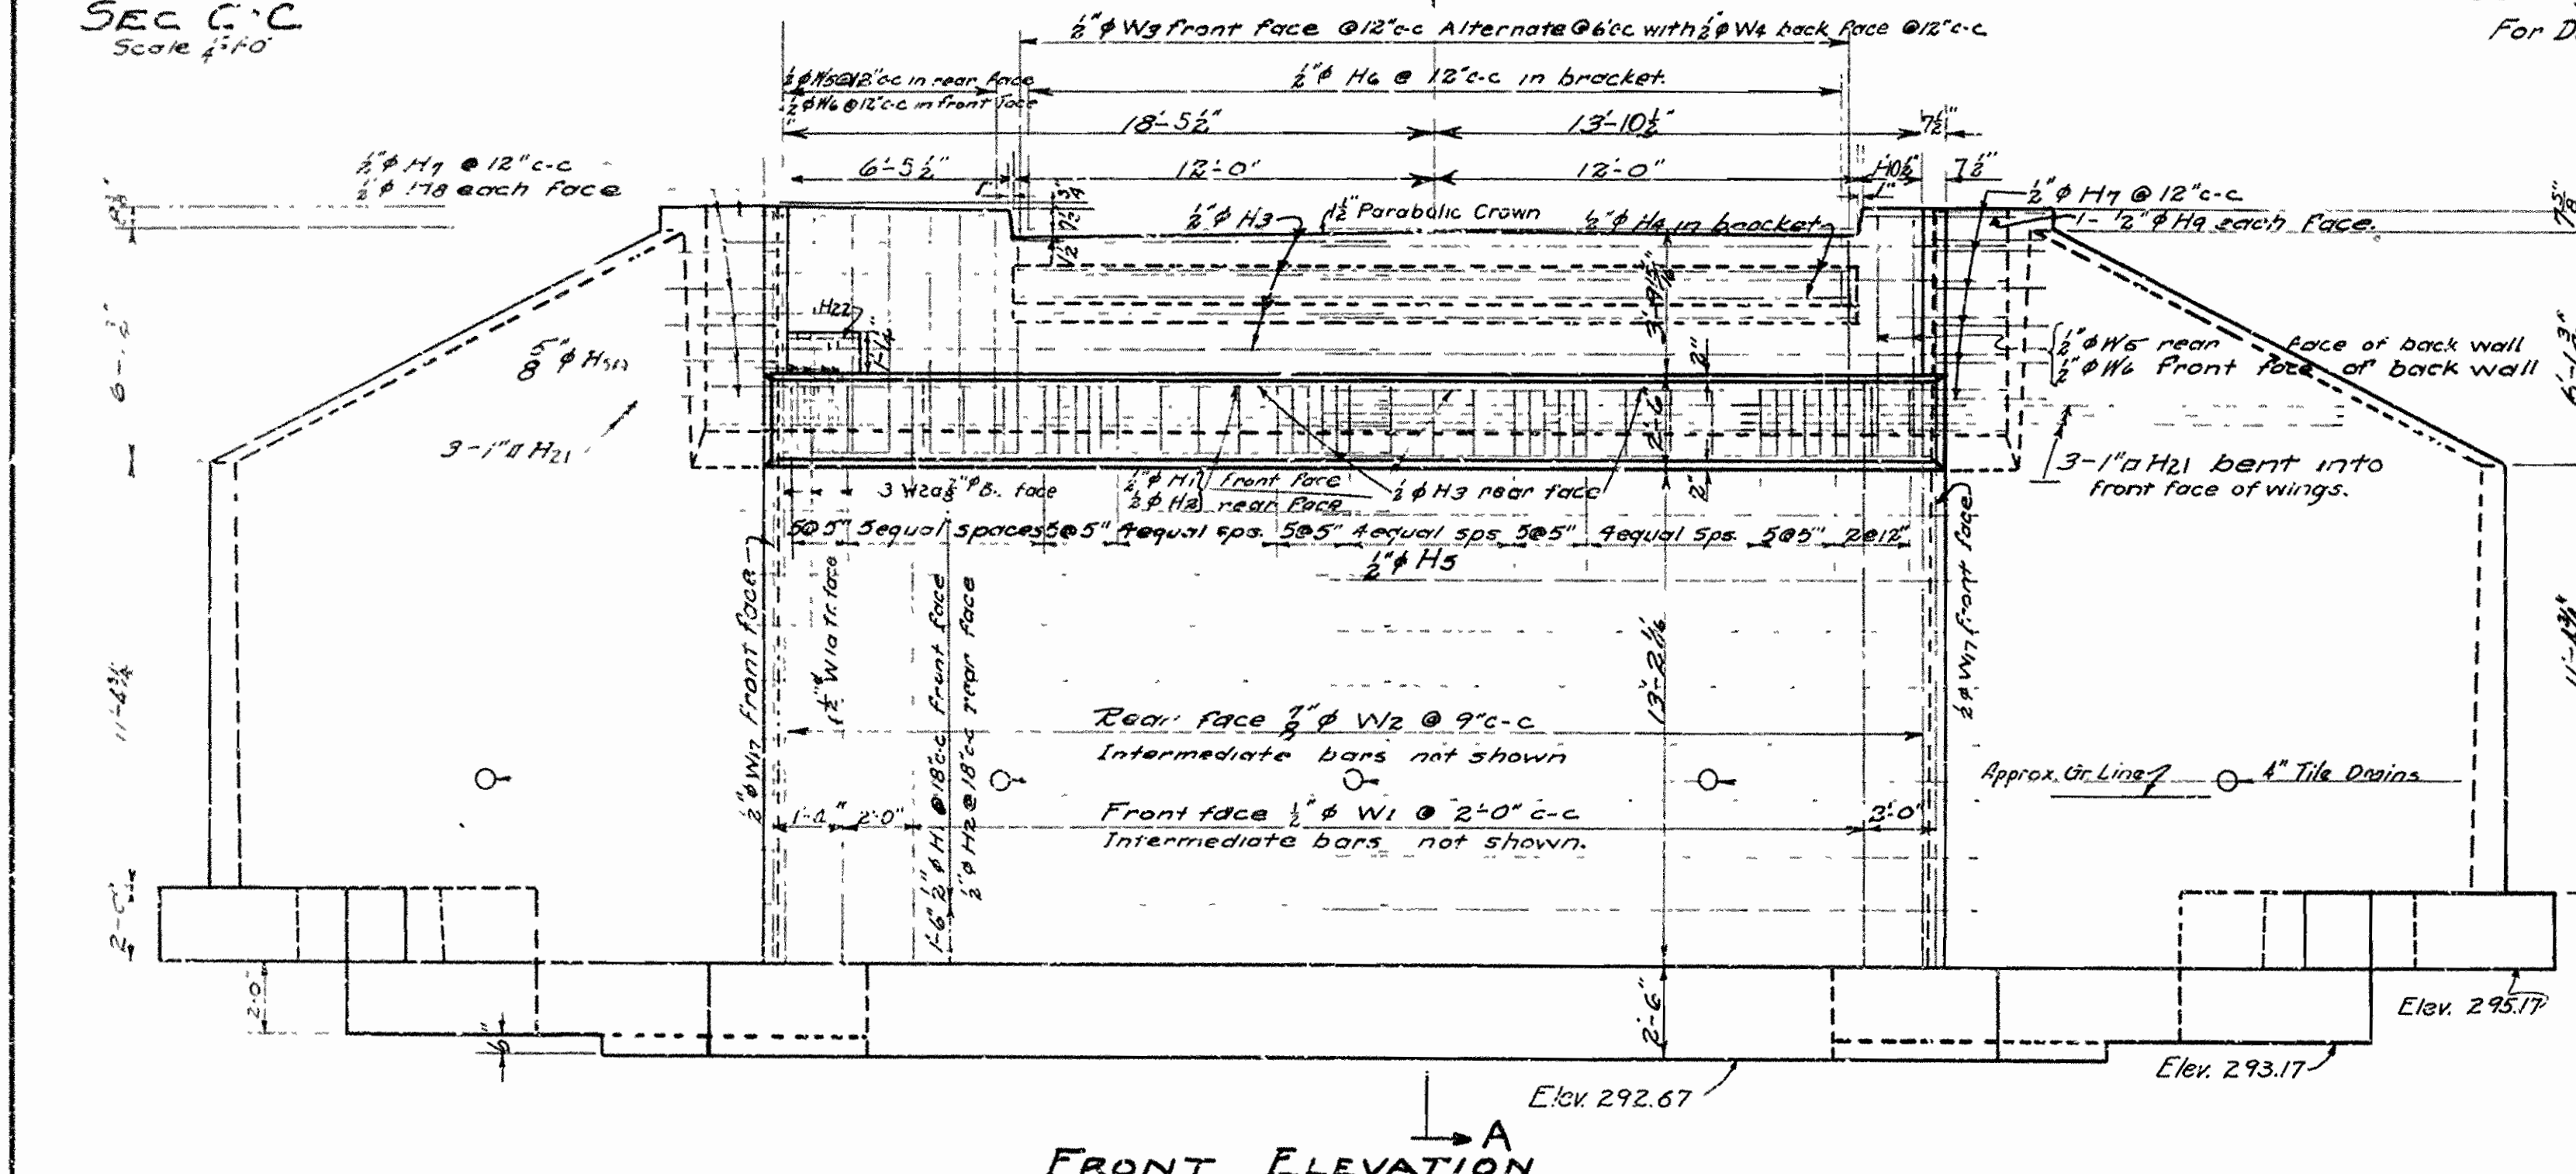 SEC C-C
Scale ¼"=1'-0"
½"φ W3 front face @12"c-c Alternate @6"cc with ½"φ W4 back face @12"c-c
For D
½φW5@12"c-c in rear face
½"φ H6 @ 12"c-c in bracket.
½φW6@12"c-c in front face
18'-5½"
13'-10½"
7½"
½"φ H7 @ 12"c-c
½"φ H8 each face
6'-5½"
12'-0"
12'-0"
1'-10½"
7½"
1"
1"
½"φ H7 @ 12"c-c
1-½"φ H9 each face.
½"φ H3
1½" Parabolic Crown
½"φ H4 in bracket
7⅝"
H22
1'-1¼"
3'-9 15/16"
2"
½"φ W5 rear face of back wall
½"φ W6 front face of back wall
6'-1½"
6'-1⅜"
3-1"□ H21
2'-6"
3-1"□ H21 bent into
front face of wings.
½"φ H1 front face
½φ H2 rear face
½φ H3 rear face
2"
5@5" 5equal spaces 5@5" 4equal sps. 5@5" 4equal sps 5@5" 4equal sps. 5@5" 2@12"
½"φ H5
½"φ W17 front face
½"φ W1a fr. face
1'-6" ½"φ H1 @ 18"c-c front face
½"φ H2 @ 18"c-c rear face
13'-2 1/16"
½φ W17 front face
11'-4¾"
11'-4¾"
Rear face ⅞"φ W2 @ 9"c-c
Intermediate bars not shown
Approx. Gr. Line
4" Tile Drains
Front face ½"φ W1 @ 2'-0" c-c
Intermediate bars not shown.
2'-0"
3'-0"
2'-0"
2'-0"
6"
2'-6"
Elev. 295.17
Elev. 293.17
Elev. 292.67
A
FRONT ELEVATION